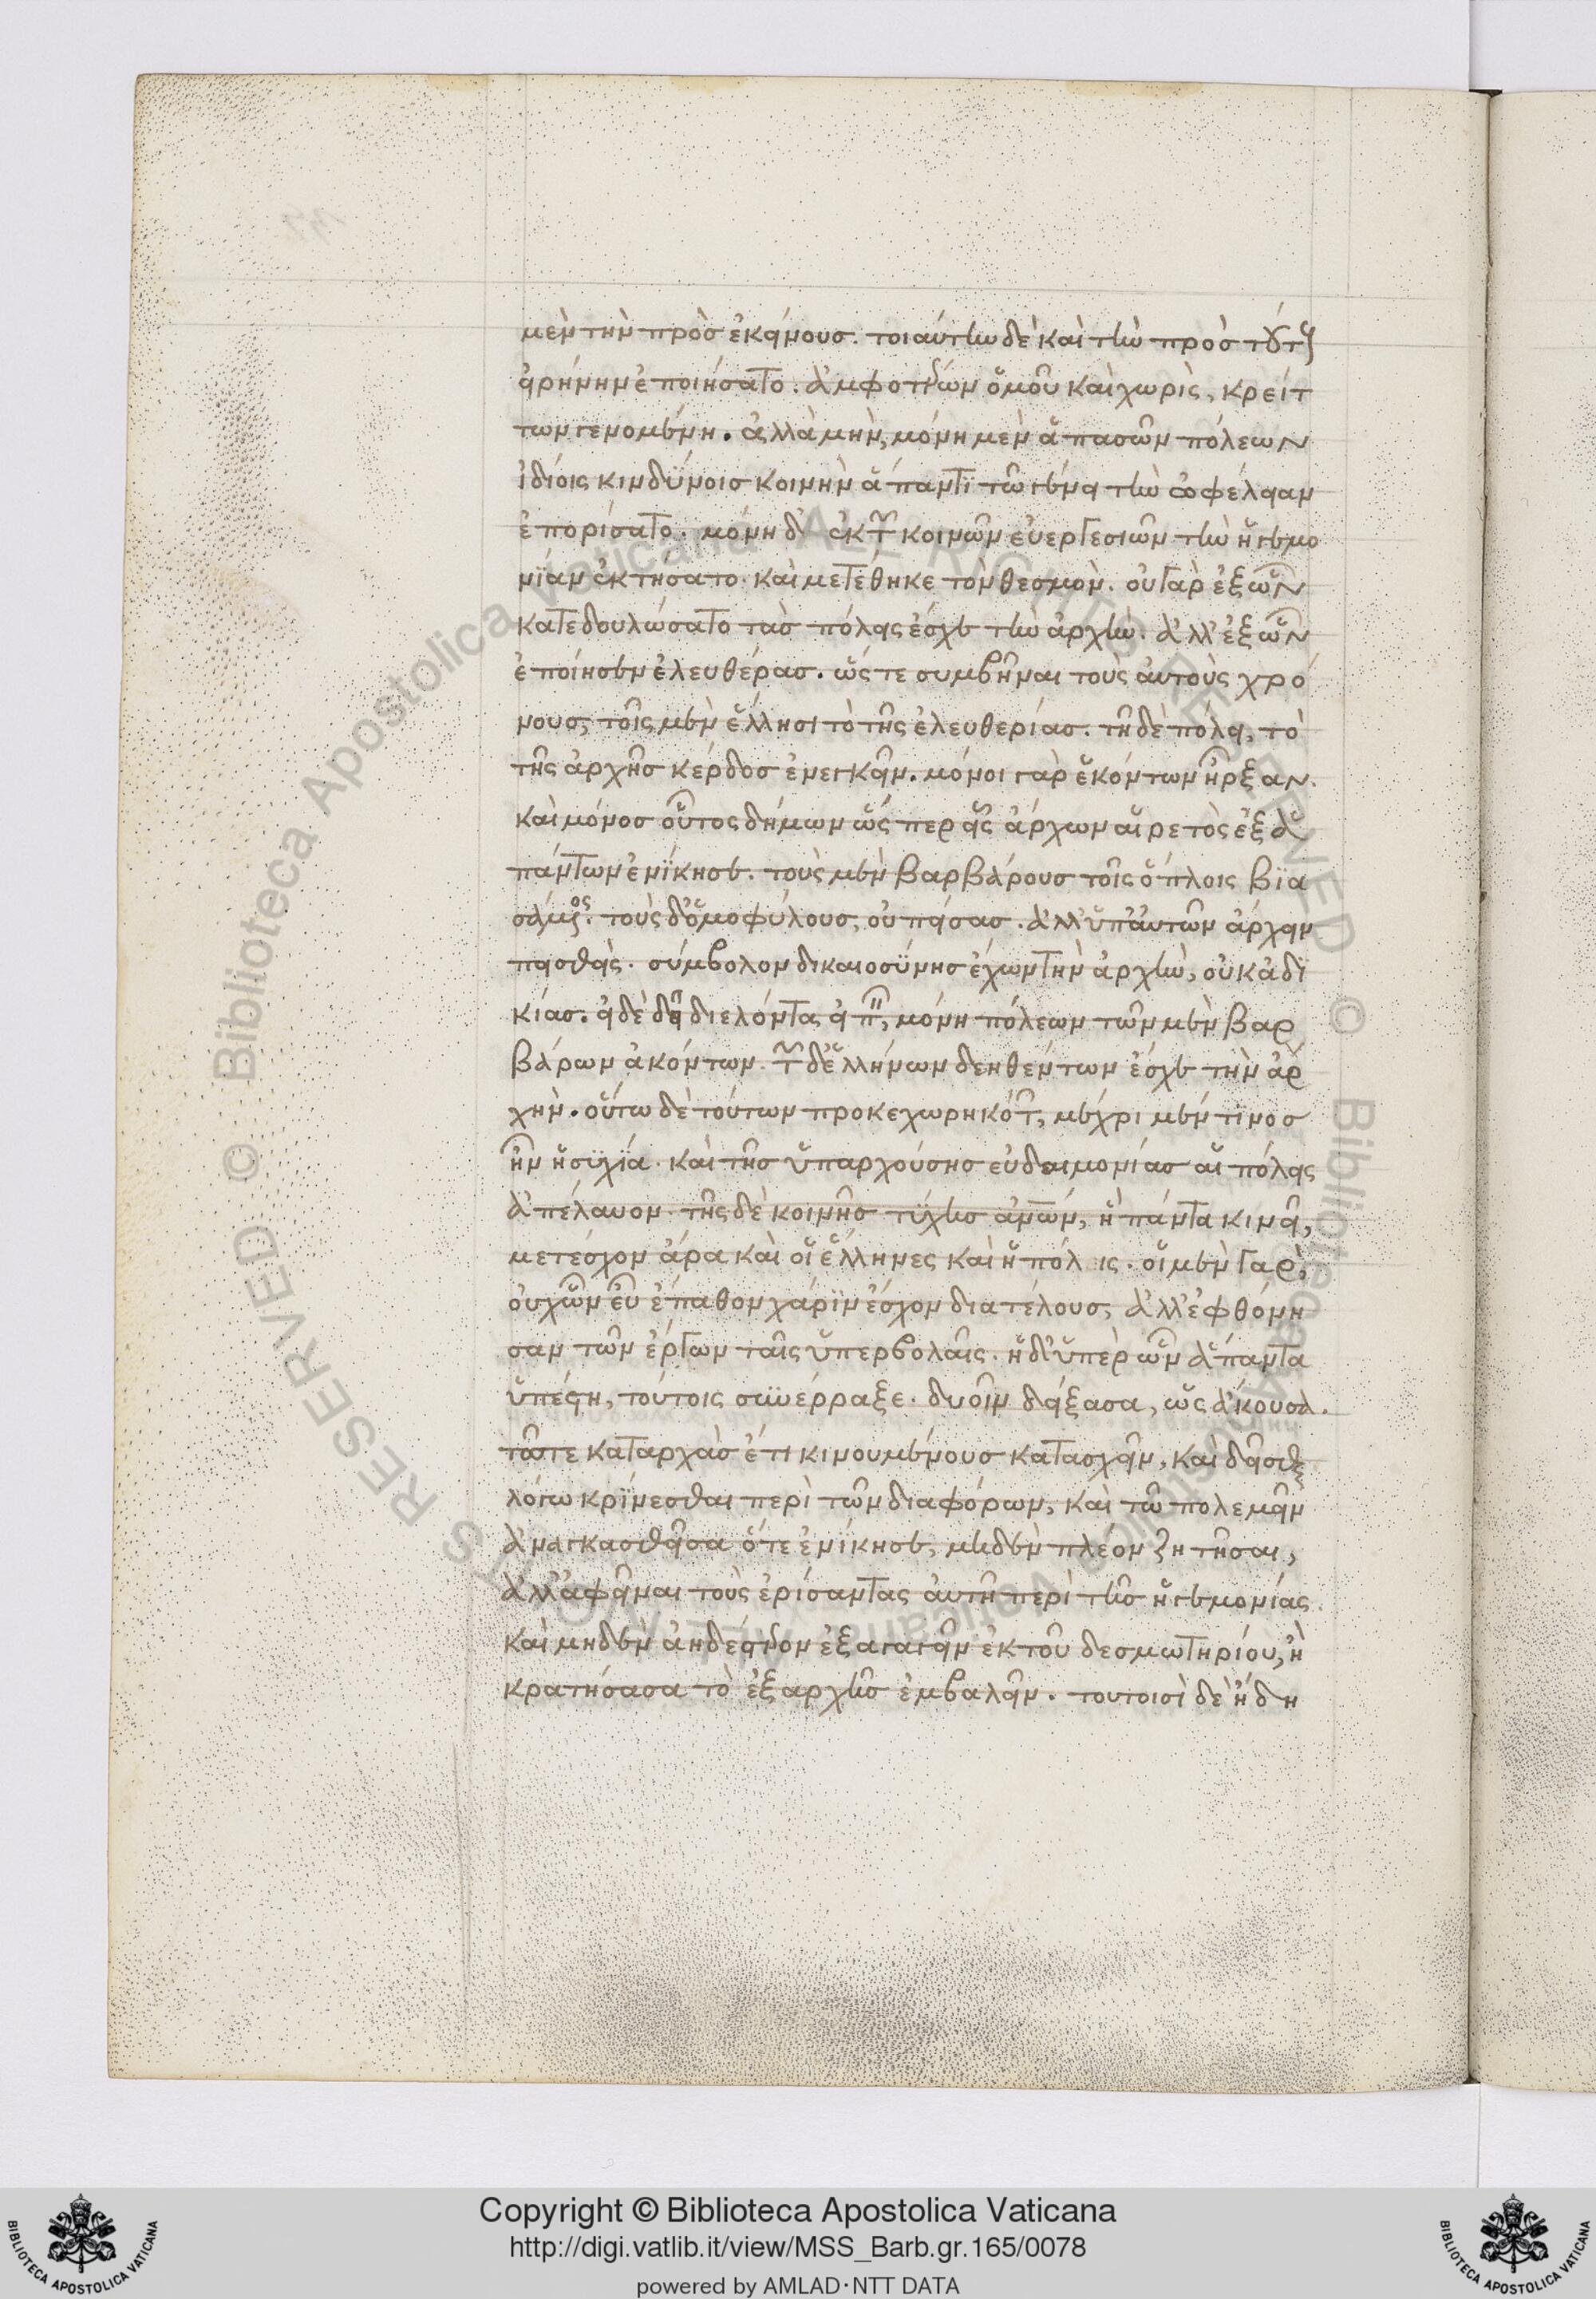 μὲν τὴν πρὸς ἐκείνους. τοιαύτην δὲ καὶ τὴν πρὸς τούτους
εἰρήνην ἐποιήσατο. ἀμφοτέρων ὁμοῦ καὶ χωρὶς, κρείτ
των γενομένη. ἀλλὰ μὴν, μόνη μὲν ἁπασῶν πόλεων
ἰδίοις κινδύνοις κοινὴν ἅπαντι τῶ γένει τὴν ὠφέλειαν
ἐπορίσατο. μόνη δ' ἐκ τῶν κοινῶν εὐεργεσιῶν τὴν ἡγεμο
νίαν ἐκτήσατο. καὶ μετέθηκε τὸν θεσμὸν. οὐ γὰρ ἐξ ὧν
κατεδουλώσατο τὰς πόλεις ἔσχε τὴν ἀρχὴν. ἀλλ' ἐξ ὧν
ἐποίησεν ἐλευθέρας. ὥς τε συμβῆναι τοὺς αὐτοὺς χρό
νους, τοῖς μὲν ἕλλησι τὸ τῆς ἐλευθερίας. τῆ δὲ πόλει, τὸ
τῆς ἀρχῆς κέρδος ἐνεγκεῖν. μόνοι γὰρ ἑκόντων ἦρξαν.
καὶ μόνος οὗτος δήμων ὥς περ εἷς ἀρχων αἱρετὸς ἐξ ἁ
πάντων ἐνίκησε. τοὺς μὲν βαρβάρους τοῖς ὅπλοις βια
σάμενος. τοὺς δ' ὁμοφύλους, οὐ πείσας. ἀλλ' ὑπ' αὐτῶν ἄρχειν
πεισθεὶς. σύμβολον δικαιοσύνης ἔχων τὴν ἀρχὴν, οὐκ ἀδι
κίας. εἰ δὲ δεῖ διελόντα εἰπεῖν, μόνη πόλεων τῶν μὲν βαρ
βάρων ἀκόντων. τῶν δ' ἑλλήνων δεηθέντων ἔσχε τὴν ἀρ
χὴν. οὕτω δὲ τούτων προκεχωρηκότων, μέχρι μέν τινος
ἦν ἡσυχία. καὶ τῆς ὑπαρχούσης εὐδαιμονίας αἱ πόλεις
ἀπέλαυον. τῆς δὲ κοινῆς τύχης ἀνθρώπων, ἣ πάντα κινεῖ,
μετέσχον ἄρα καὶ οἱ ἕλληνες καὶ ἡ πόλ ις. οἱ μὲν γὰρ,
οὐχ ὧν εὖ ἔπαθον χάριν ἔσχον διατέλους, ἀλλ' ἐφθόνη
σαν τῶν ἔργων ταῖς ὑπερβολαῖς. ἡ δ' ὑπὲρ ὧν ἅπαντα
ὑπέστη, τούτοις συνέρραξε. δυοῖν δείξασα, ὡς ἄκουσα.
τῶ τε καταρχὰς ἔτι κινουμένους κατασχεῖν, καὶ δεῖσθαι
λόγω κρίνεσθαι περὶ τῶν διαφόρων, καὶ τῶ πολεμεῖν
ἀναγκασθεῖσα ὅτε ἐνίκησε, μηδὲν πλέον ζητῆσαι,
ἀλλ' ἀφεῖναι τοὺς ἐρίσαντας αὐτῆ περὶ τῆς ἡγεμονίας.
καὶ μηδὲν ἀηδέστερον ἐξαγαγεῖν ἐκ τοῦ δεσμωτηρίου, ἢ
κρατήσασα τὸ ἐξαρχῆς ἐμβαλεῖν. τουτοισὶ δὲ ἤδη
Copyright © Biblioteca Apostolica Vaticana
http://digi.vatlib.it/view/MSS_Barb.gr.165/0078
powered by AMLAD·NTT DATA